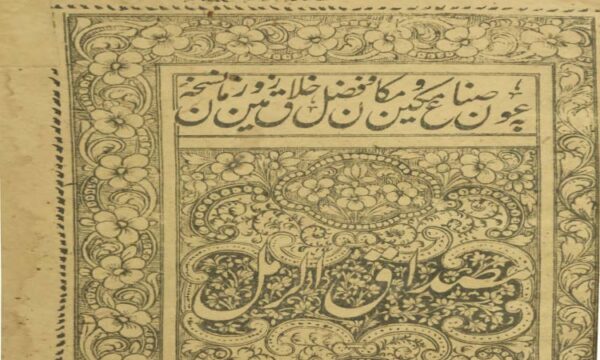 بعون صناع مکین و مکان فضل خلاق زمین و زمان نسخه
مصداق الرمل